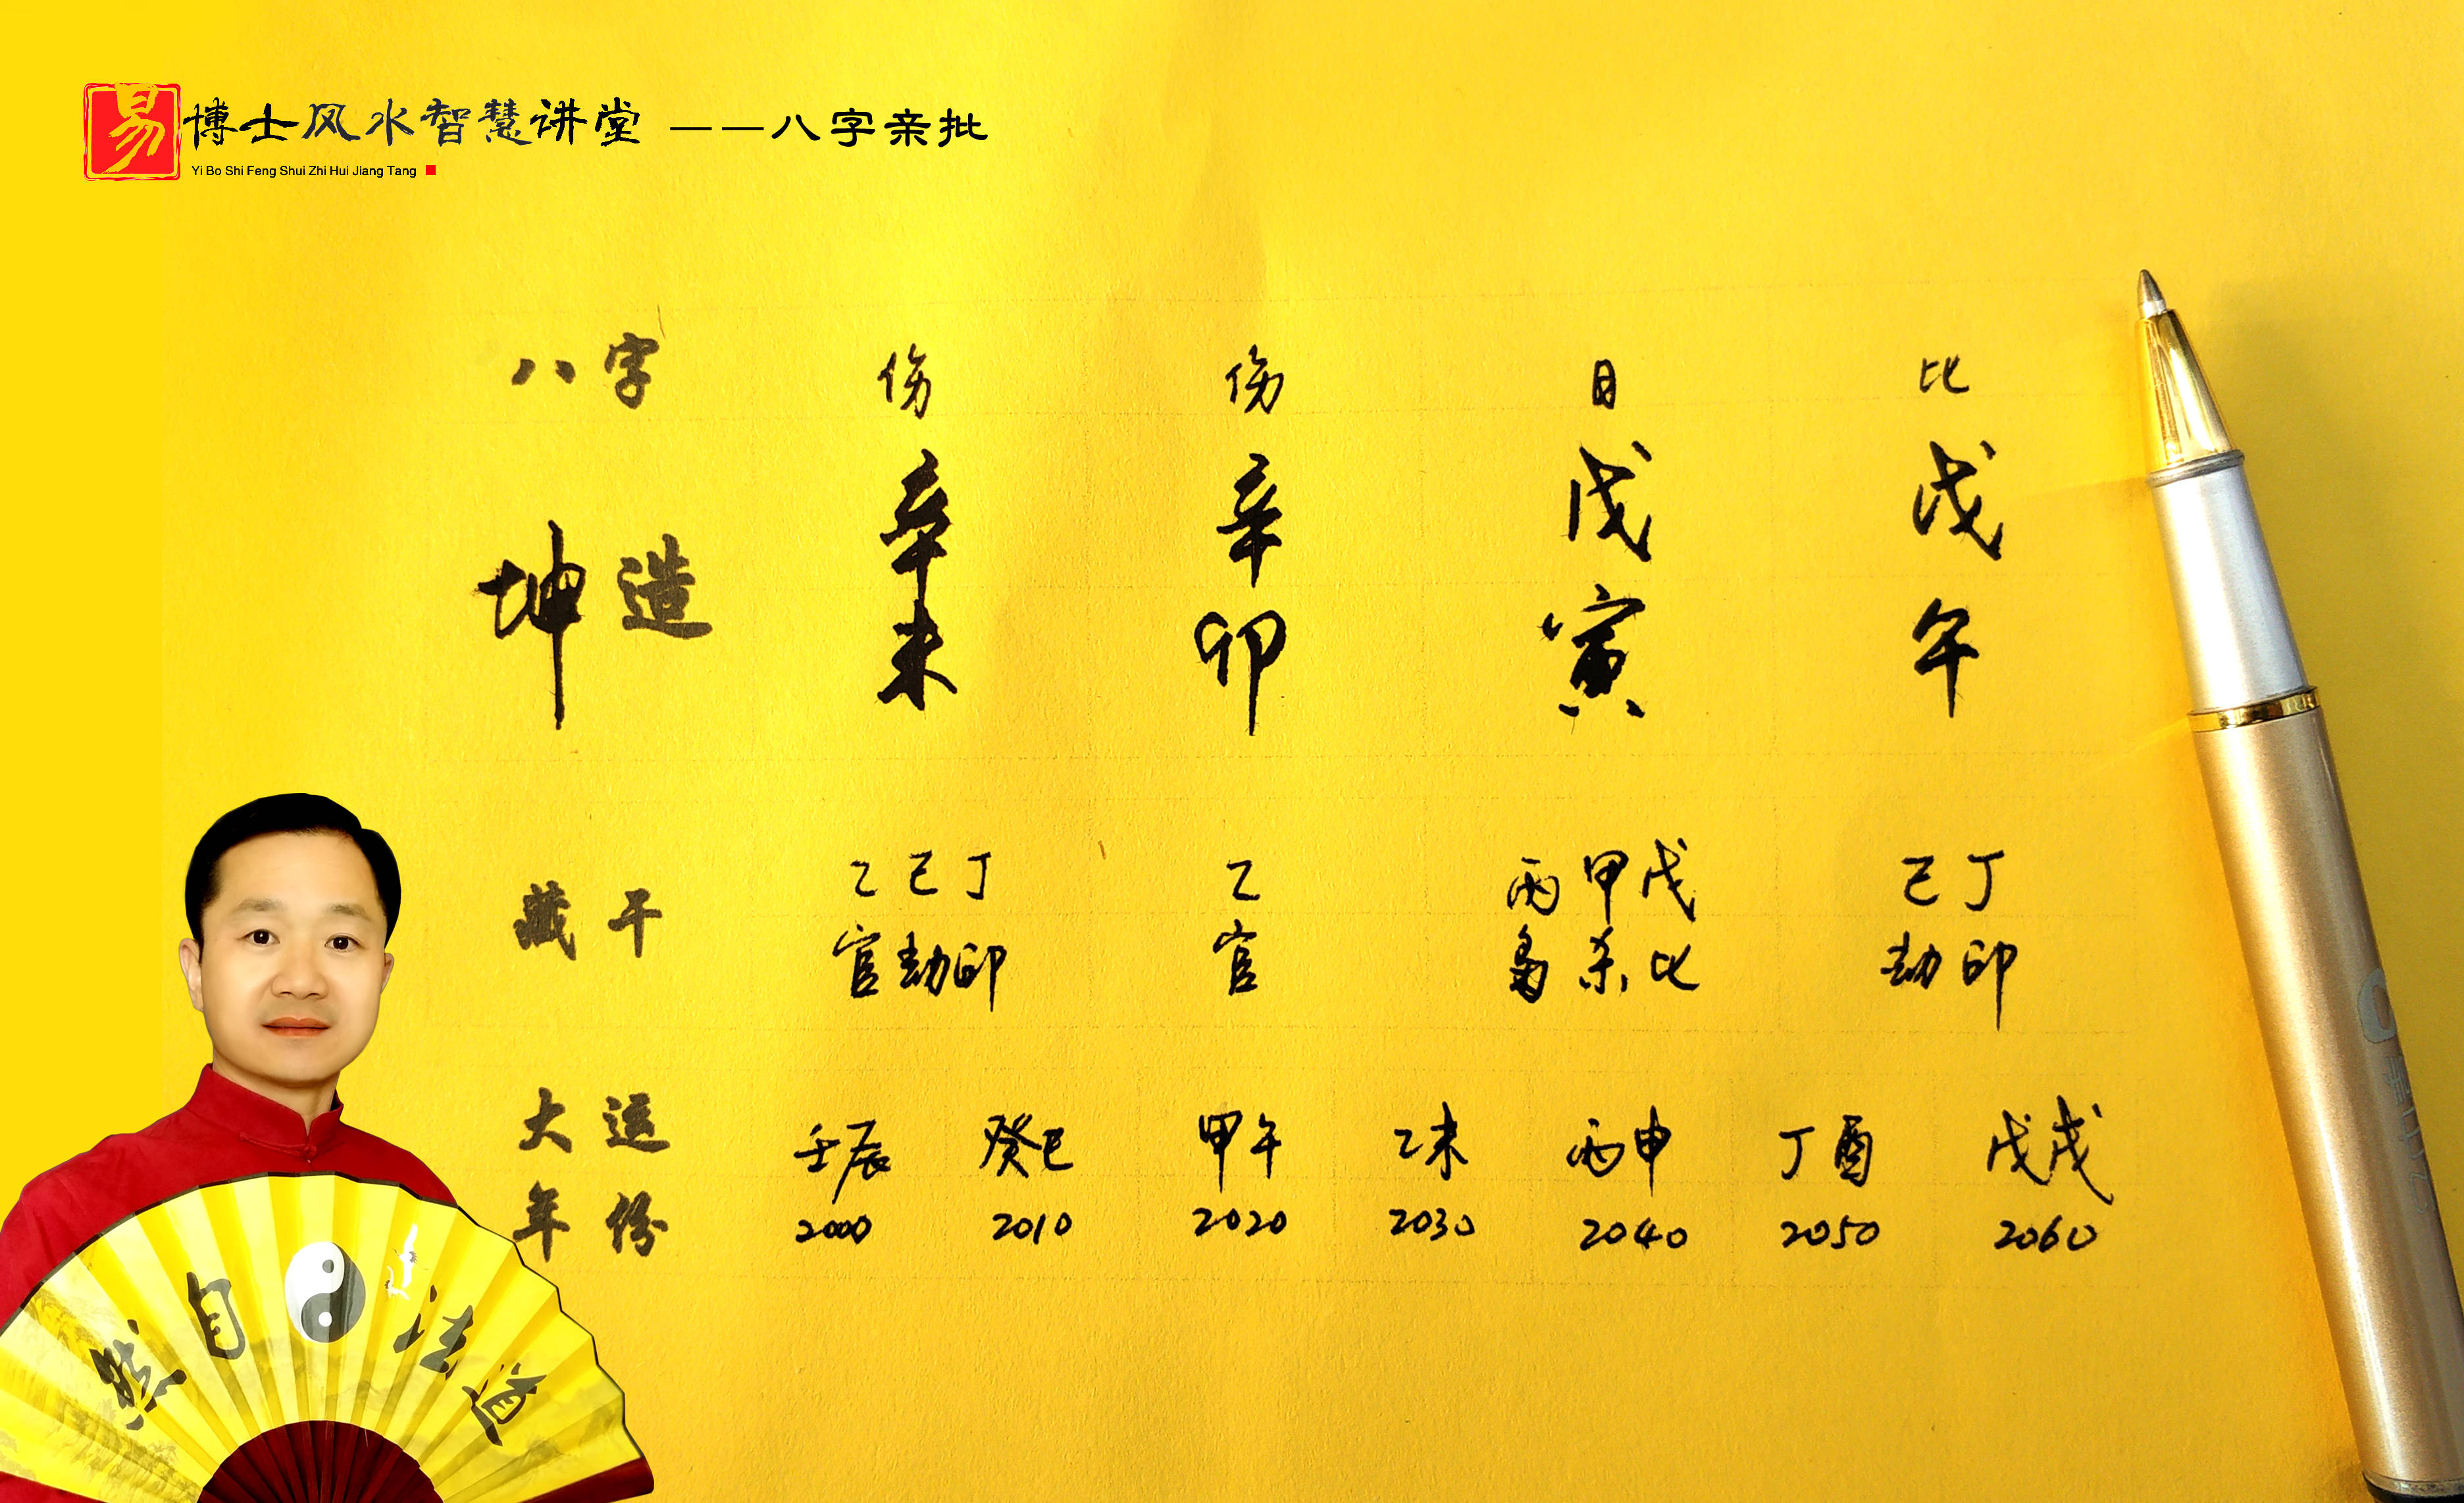 易博士风水智慧讲堂 ——八字亲批
Yi Bo Shi Feng Shui Zhi Hui Jiang Tang
八字 伤 伤 日 比
坤造 辛 辛 戊 戊
未 卯 寅 午
藏干 乙己丁 乙 丙甲戊 己丁
官劫印 官 枭杀比 劫印
大运 壬辰 癸巳 甲午 乙未 丙申 丁酉 戊戌
年份 2000 2010 2020 2030 2040 2050 2060
道法自然